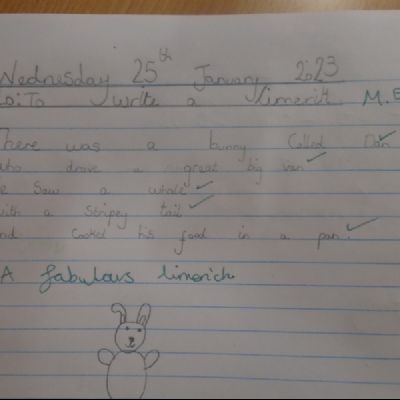 Wednesday 25th January 2023
LO: To write a limerick M.E
There was a bunny called Dan
who drove a great big van
He saw a whale
with a stripey tail
and cooked his food in a pan.
A fabulous limerick